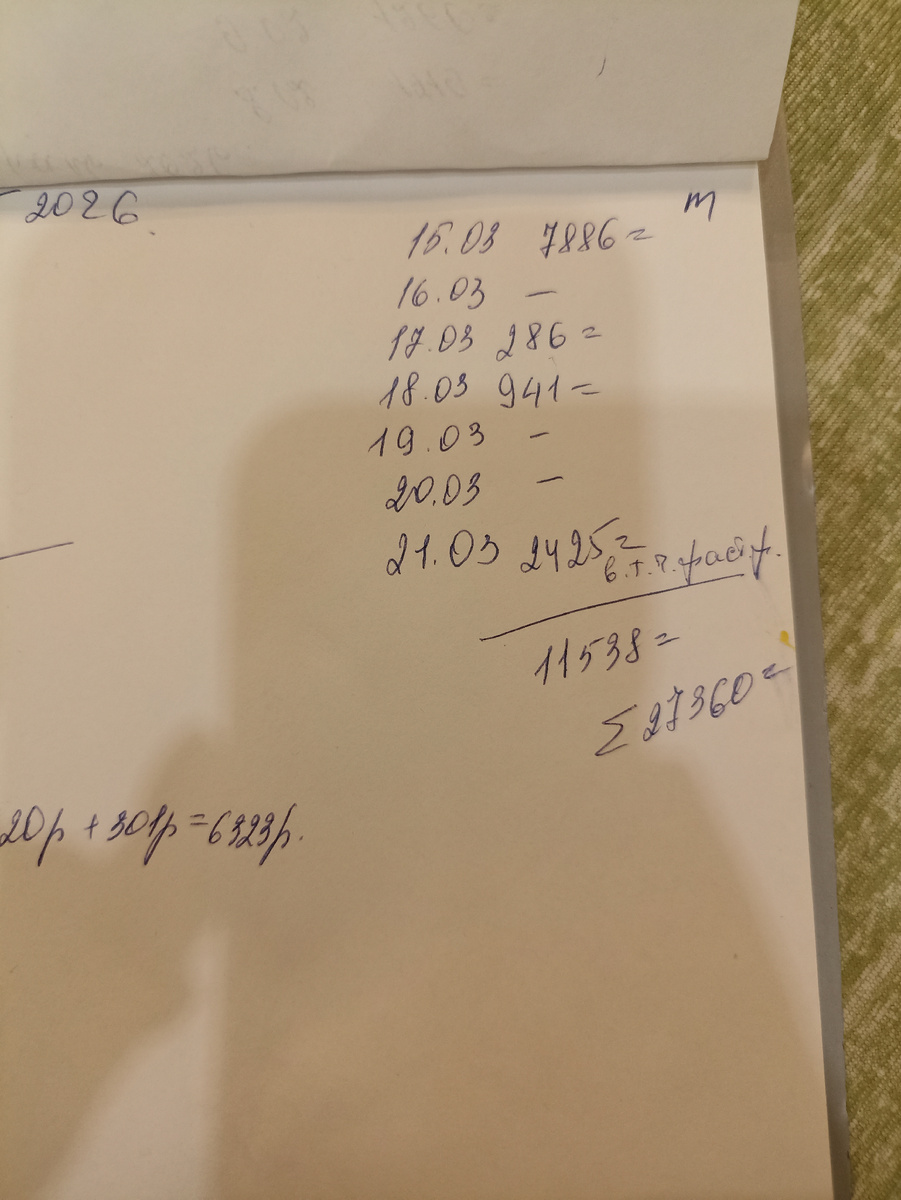 2026.
m
15.03 7886=
16.03 –
17.03 286=
18.03 941=
19.03 –
20.03 –
21.03 2425=
в.т.ч.
11538=
Σ27360=
20р + 301р = 6323р.